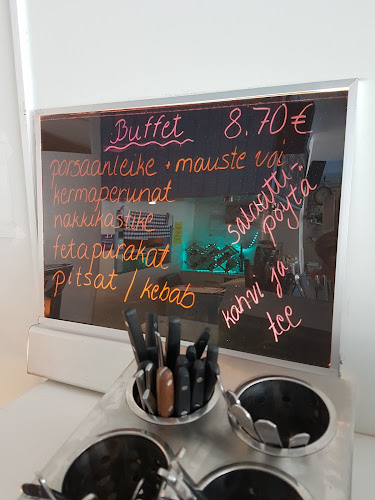 Buffet 8.70€
porsaanleike + mauste voi
kermaperunat
nakkikastike
fetapurakat
pitsat / kebab
salaatti-
pöytä
kahvi ja
tee